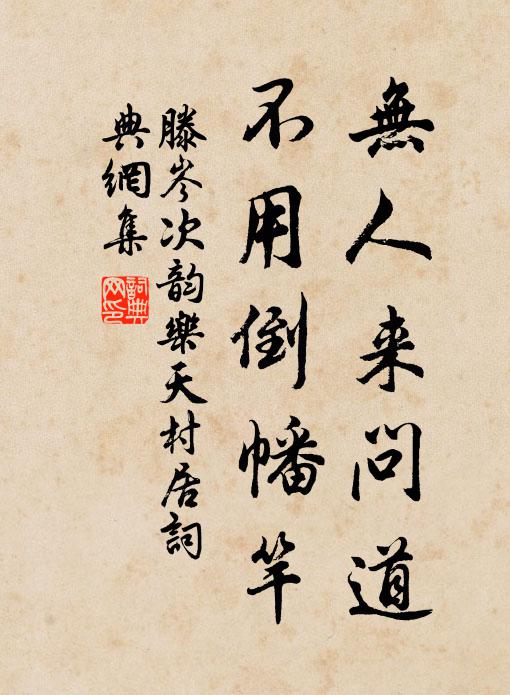 無人来問道
不用倒幡竿
滕岑次韵樂天村居詞
典網集
詞典網印